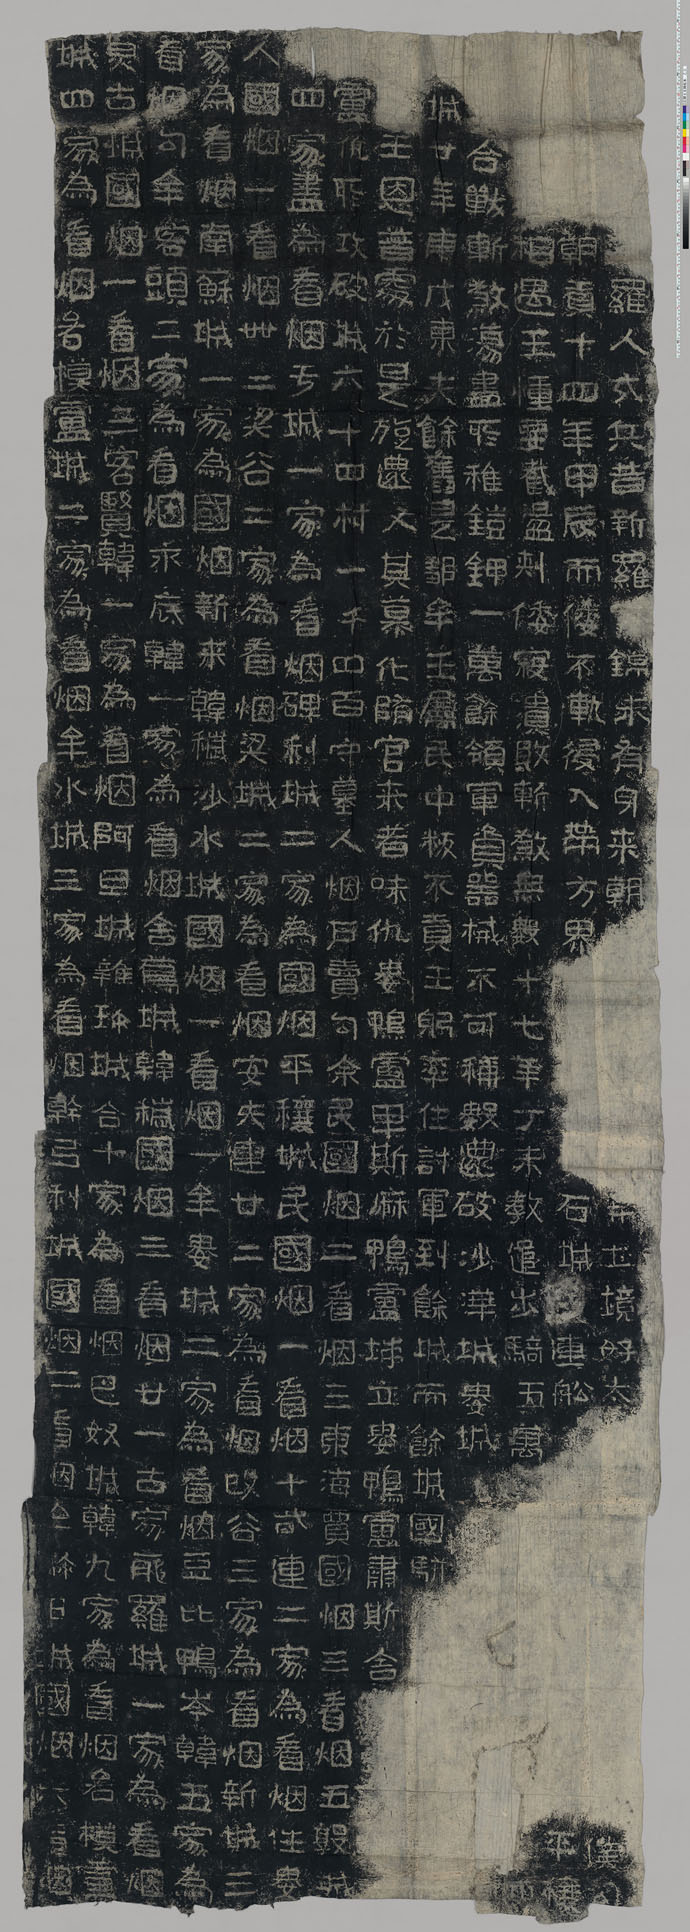 羅人戍兵昔新羅錦未有身來朝土境好太僕
朝貢十四年甲辰而倭不軌侵入帶方界石城連船平穰
相遇王幢要截盪刺倭寇潰敗斬煞無數十七年丁未教遣步騎五萬
合戰斬煞蕩盡所稚鎧鉀一萬餘領軍資器械不可稱數還破沙溝城婁城
城廿年庚戌東夫餘舊是鄒牟王屬民中叛不貢王躬率住討軍到餘城而餘城國駢
王恩普處於是旋還又其慕化隨官來者味仇婁鴨盧卑斯麻鴨盧椯立婁鴨盧肅斯舍
盧凡所攻破城六十四村一千四百守墓人烟戶賣勾余民國烟二看烟三東海賈國烟三看烟五敦城
四家盡為看烟于城一家為看烟碑利城二家為國烟平穰城民國烟一看烟十訾連二家為看烟住婁
人國烟一看烟卌二梁谷二家為看烟梁城二家為看烟安夫連廿二家為看烟改谷三家為看烟新城三
家為看烟南蘇城一家為國烟新來韓穢沙水城國烟一看烟一牟婁城二家為看烟豆比鴨岑韓五家為
看烟勾牟客頭二家為看烟求底韓一家為看烟舍蔦城韓穢國烟三看烟廿一古家耶羅城一家為看烟
炅古城國烟一看烟三客賢韓一家為看烟阿旦城雜珍城合十家為看烟巴奴城韓九家為看烟各模盧
城四家為看烟各模盧城二家為看烟牟水城三家為看烟幹弖利城國烟二看烟三弥旧城國烟六看烟